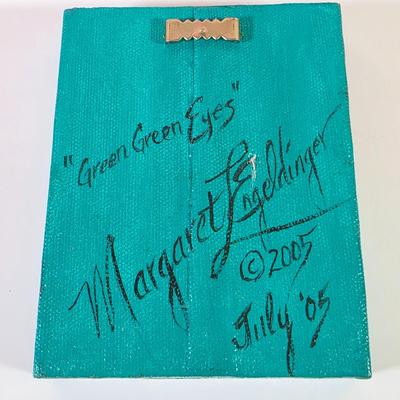 "Green Green Eyes"
Margaret Engeldinger
©2005
July '05